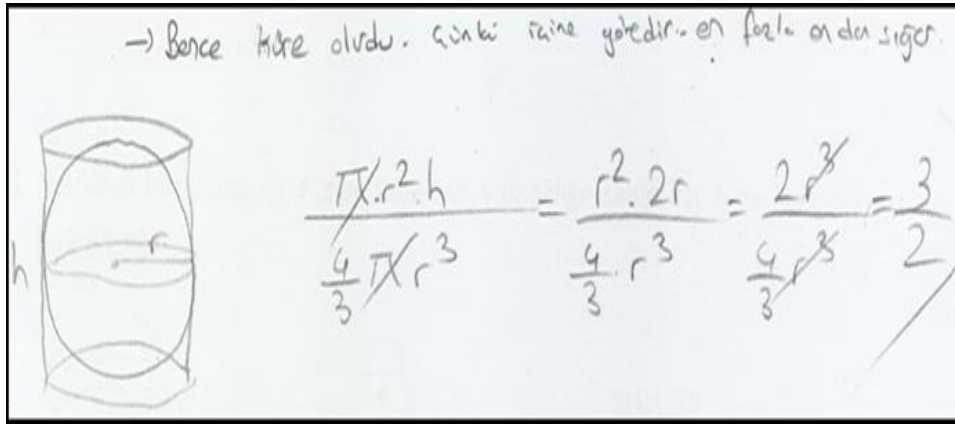 → Bence küre olurdu. Çünkü içine göredir. en fazla ondan sığar.
h
r
π.r².h / (4/3 π r³) = r².2r / (4/3 . r³) = 2r³ / (4/3 r³) = 3/2